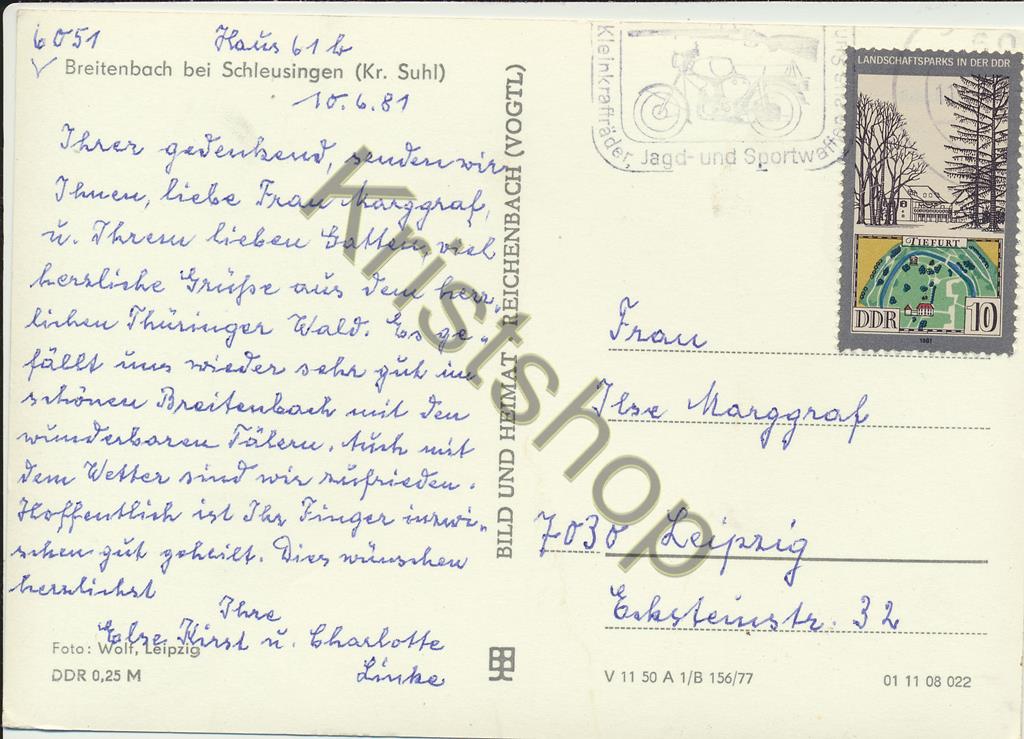 6051 Haus 61 b
Breitenbach bei Schleusingen (Kr. Suhl)
10.6.81
Ihrer gedenkend, senden wir
Ihnen, liebe Frau Marggraf,
u. Ihrem lieben Gatten, viel
herzliche Grüße aus dem herr-
lichen Thüringer Wald. Es ge-
fällt uns wieder sehr gut im
schönen Breitenbach mit den
wunderbaren Tälern. Auch mit
dem Wetter sind wir zufrieden.
Hoffentlich ist Ihr Finger inzwi-
schen gut geheilt. Dies wünschen
herzlichst
Ihre
Else Kirst u. Charlotte
Linke
Foto: Wolf, Leipzig
DDR 0,25 M
BILD UND HEIMAT REICHENBACH (VOGTL)
Kleinkrafträder, Jagd- und Sportwaffen aus Suhl
LANDSCHAFTSPARKS IN DER DDR
TIEFURT
DDR 10
1981
Frau
Ilse Marggraf
7030 Leipzig
Ecksteinstr. 32
V 11 50 A 1/B 156/77
01 11 08 022
Kristshop